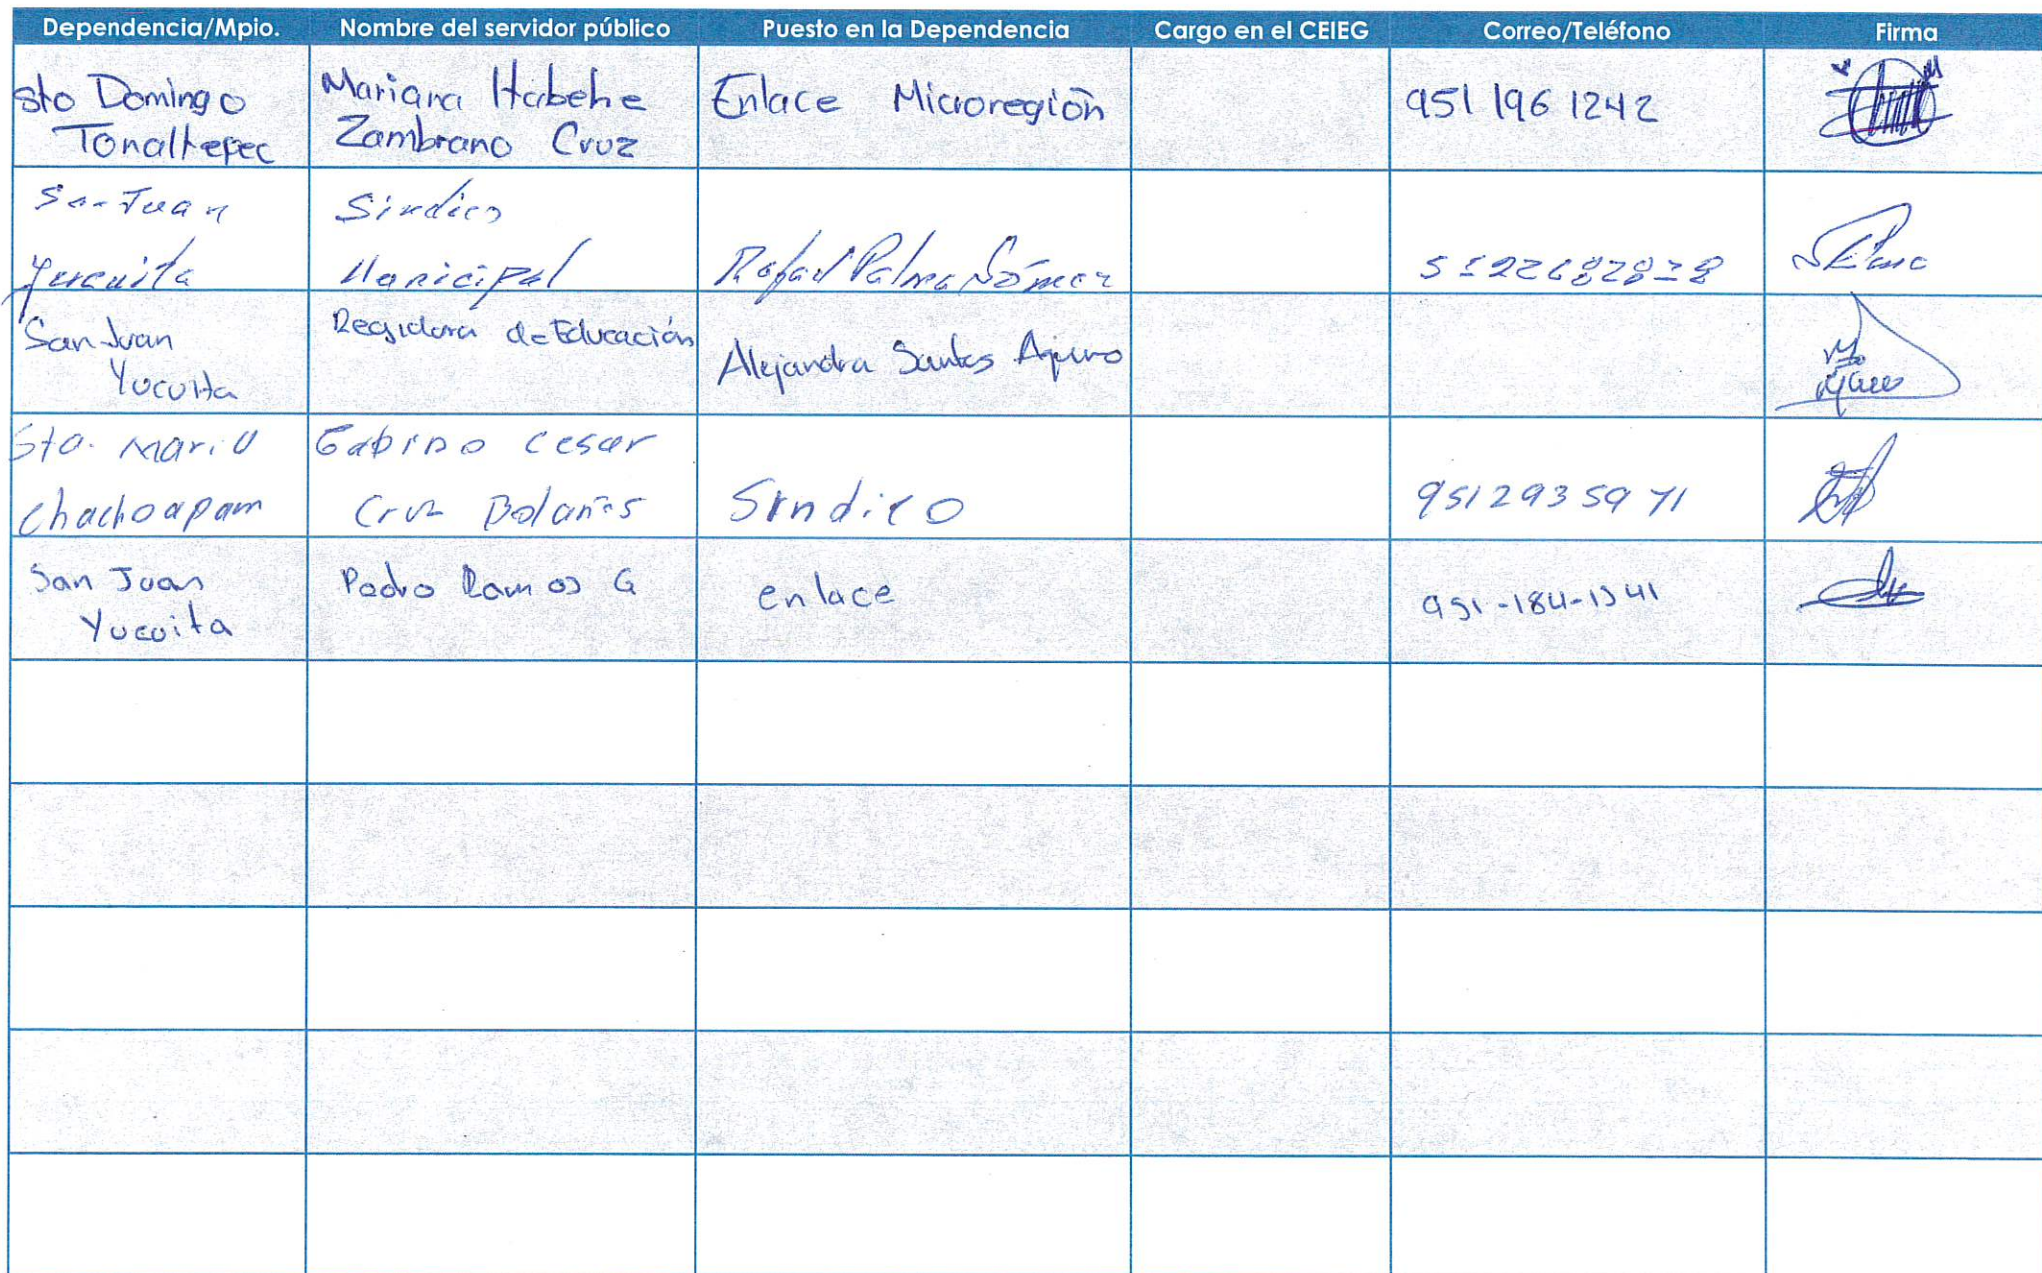 Dependencia/Mpio. Nombre del servidor público Puesto en la Dependencia Cargo en el CEIEG Correo/Teléfono Firma
sto Domingo
Tonaltepec
Mariana
Zambrano Cruz
Enlace Microregión
951 196 1242
San Juan
Yucuita
Sindico
Municipal
Rafael Palma Gómez
San Juan
Yucuita
Regidora de Educación
Alejandra Santos Aquino
Sta. Maria
Chachoapam
Gabino Cesar
Cruz Bolaños
Sindico
951 293 59 71
San Juan
Yucuita
Pedro Ramos G
enlace
951-184-1341